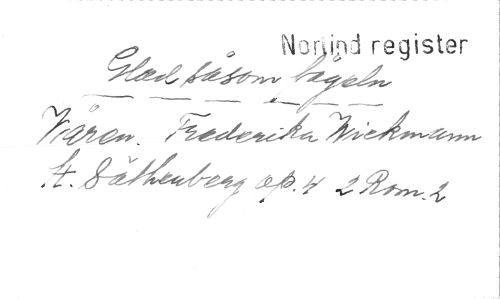 Norlind register
Glad såsom fågeln
Våren. Frederika Wickmann
H. Säthenberg op. 4 2 Rom. 2